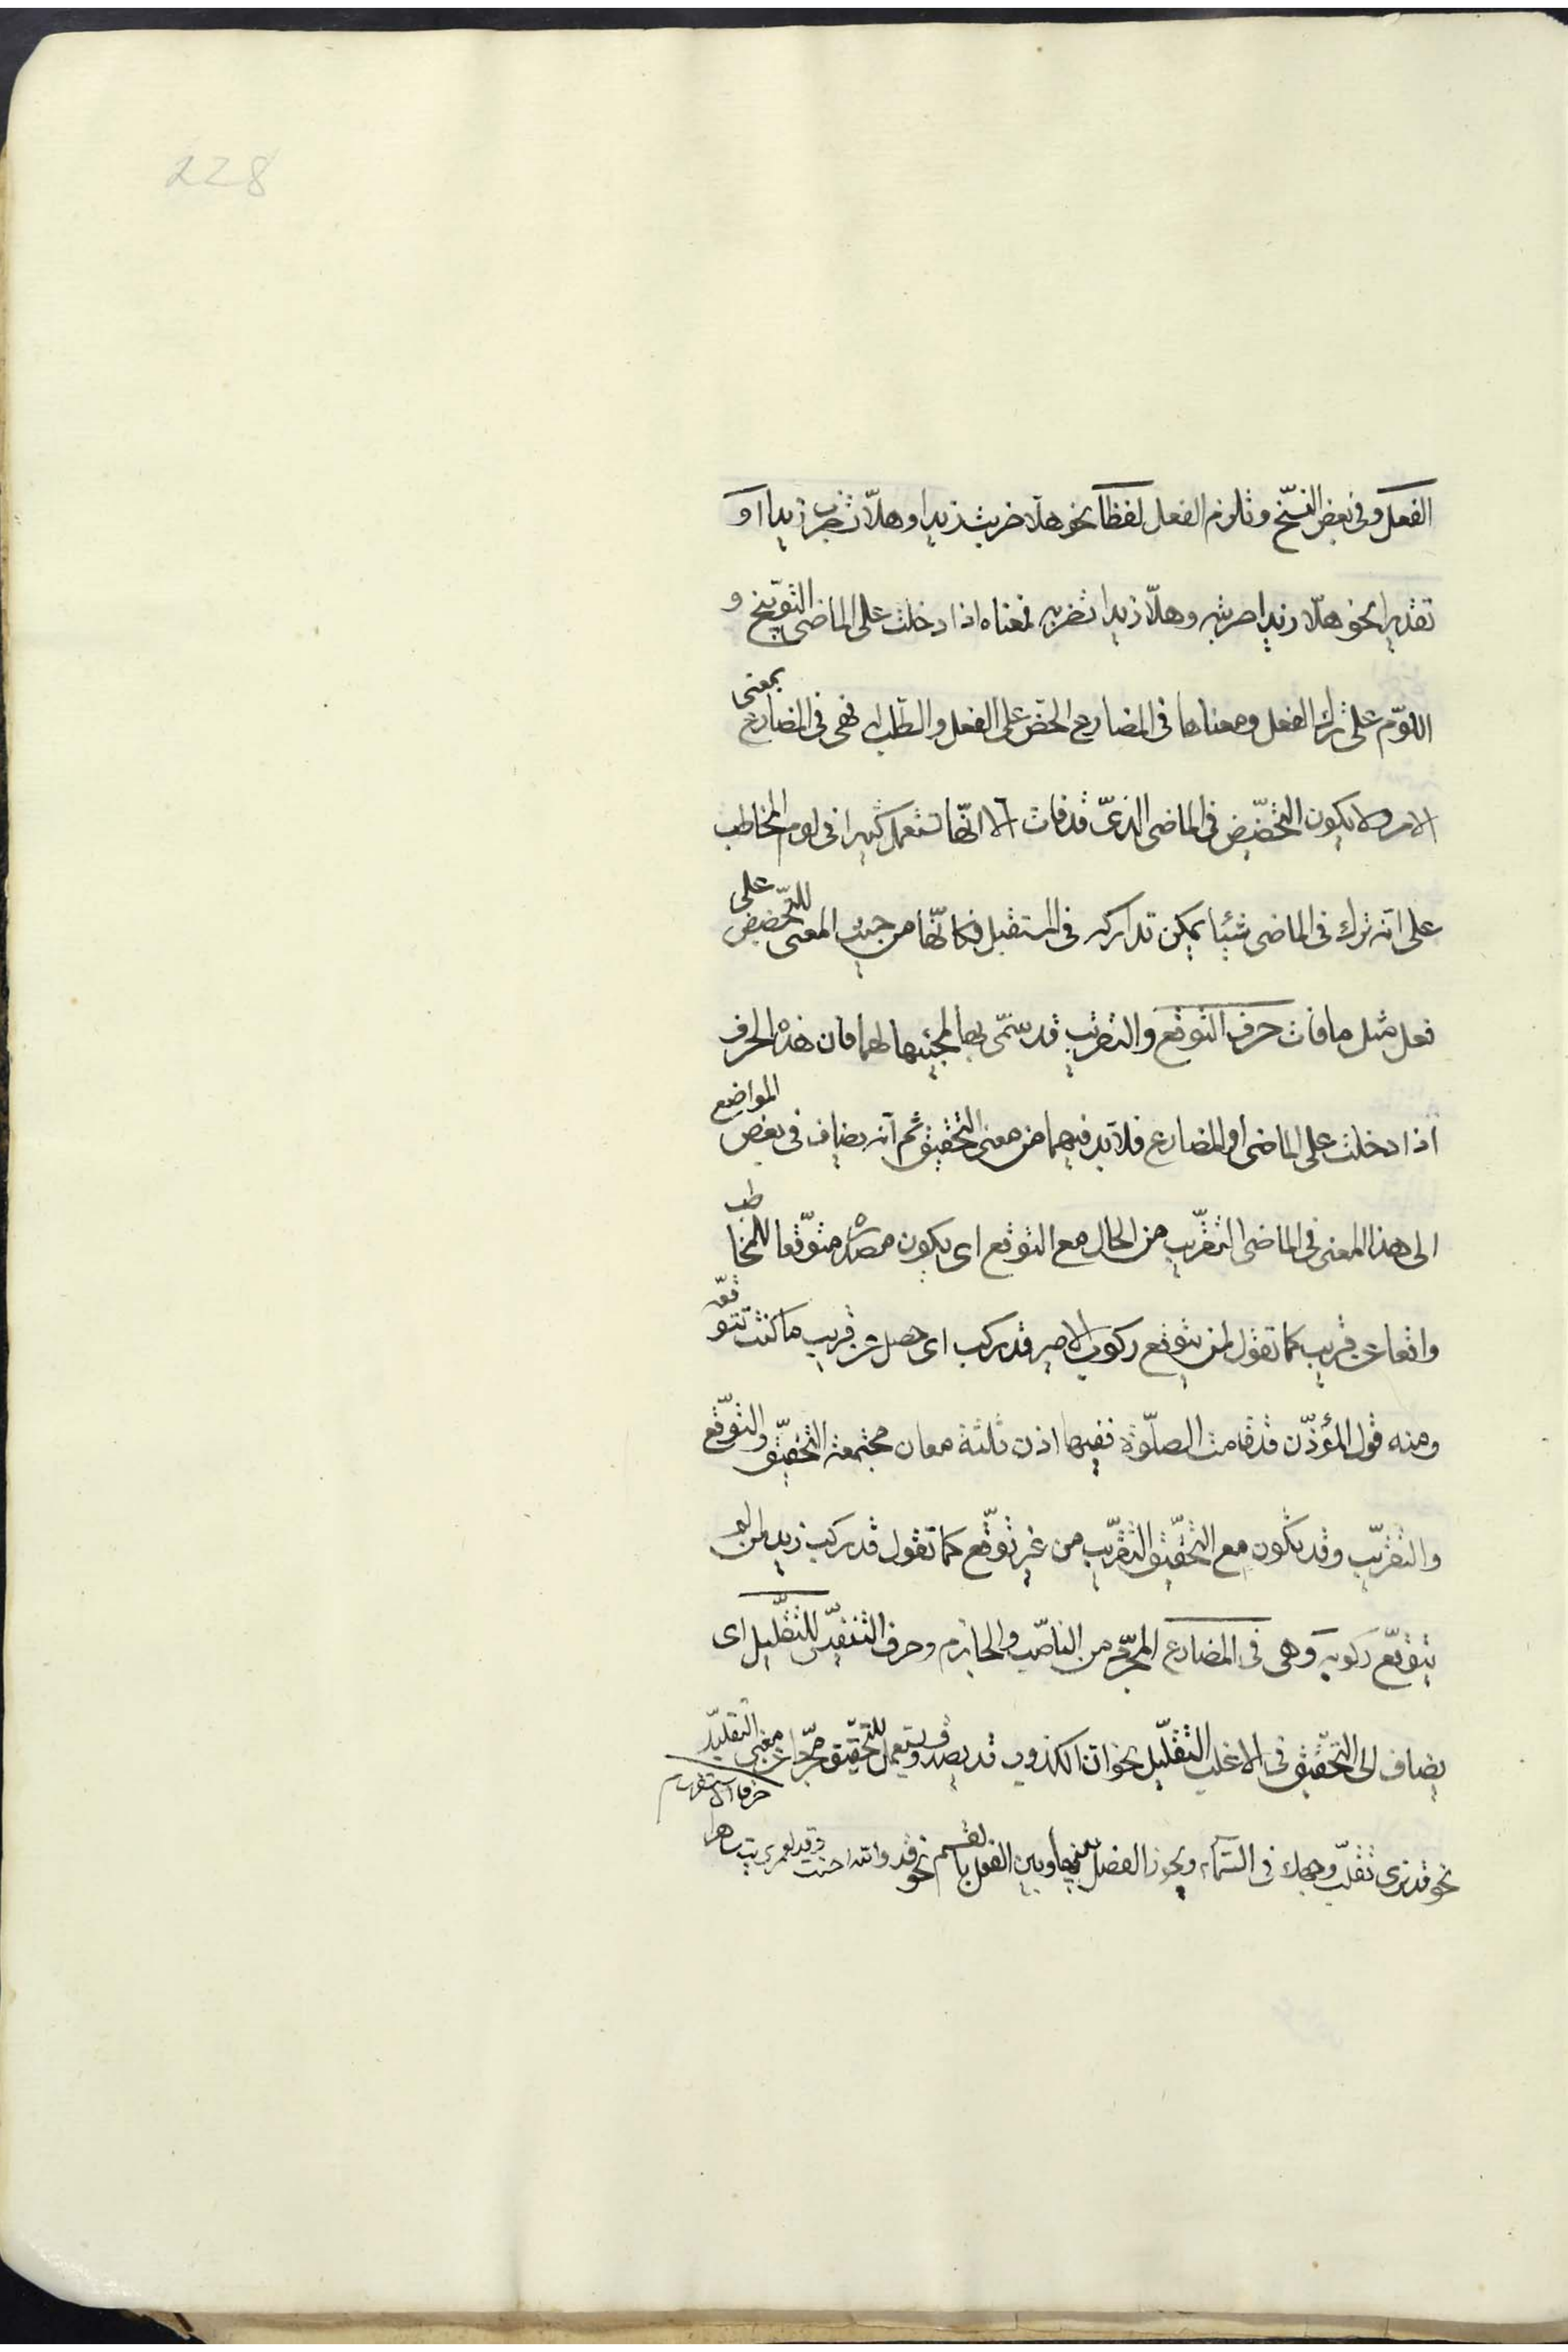 228
الفعل وفى بعض النسخ وتلزم الفعل لفظا نحو هلّا ضربت زيدا وهلّا تضرب زيدا او
تقديرا نحو هلّا زيدا ضربته وهلّا زيدا تضربه فمعناه اذا دخلت على الماضى التوبيخ و
اللوم على ترك الفعل ومعناها فى المضارع الحضّ على الفعل والطلب له فهى فى المضارع بمعنى
الامر ولا يكون التحضيض فى الماضى الذى قد فات الا انّها تستعمل كثيرا فى لوم المخاطب
على انه ترك فى الماضى شيئا يمكن تداركه فى المستقبل فكانّها من حيث المعنى للتّحضيض على
فعل مثل ما فات حرف التوقع والتقريب قد سمّى بها لمجيئها لهما فان هذه الحرف
اذا دخلت على الماضى او المضارع فلا بد فيهما من معنى التحقيق ثم انه يضاف فى بعض المواضع
الى هذا المعنى فى الماضى التقريب من الحال مع التوقع اى يكون مصدره متوقّعا للمخاطب
واقعا عن قريب كما تقول لمن يتوقع ركوب الامير قد ركب اى حصل عن قريب ما كنت تتوقّعه
ومنه قول المؤذّن قد قامت الصلوة ففيها اذن ثلثة معان مجتمعة التحقيق والتوقّع
والتقريب وقد يكون مع التحقيق التقريب من غير توقّع كما تقول قد ركب زيد لمن لم
يتوقّع ركوبه وهى فى المضارع المجرّد من الناصب والجازم وحرف التنفيس للتقليل اى
يضاف الى التحقيق فى الاغلب التقليل نحو انّ الكذوب قد يصدق ويستعمل للتحقيق مجرّدا عن معنى التقليل
نحو قد نرى تقلّب وجهك فى السّماء ويجوز الفصل بينها وبين الفعل بالقسم نحو قد والله احسنت وقد لعمرى بت ساهرا
حرفا الاستفهام